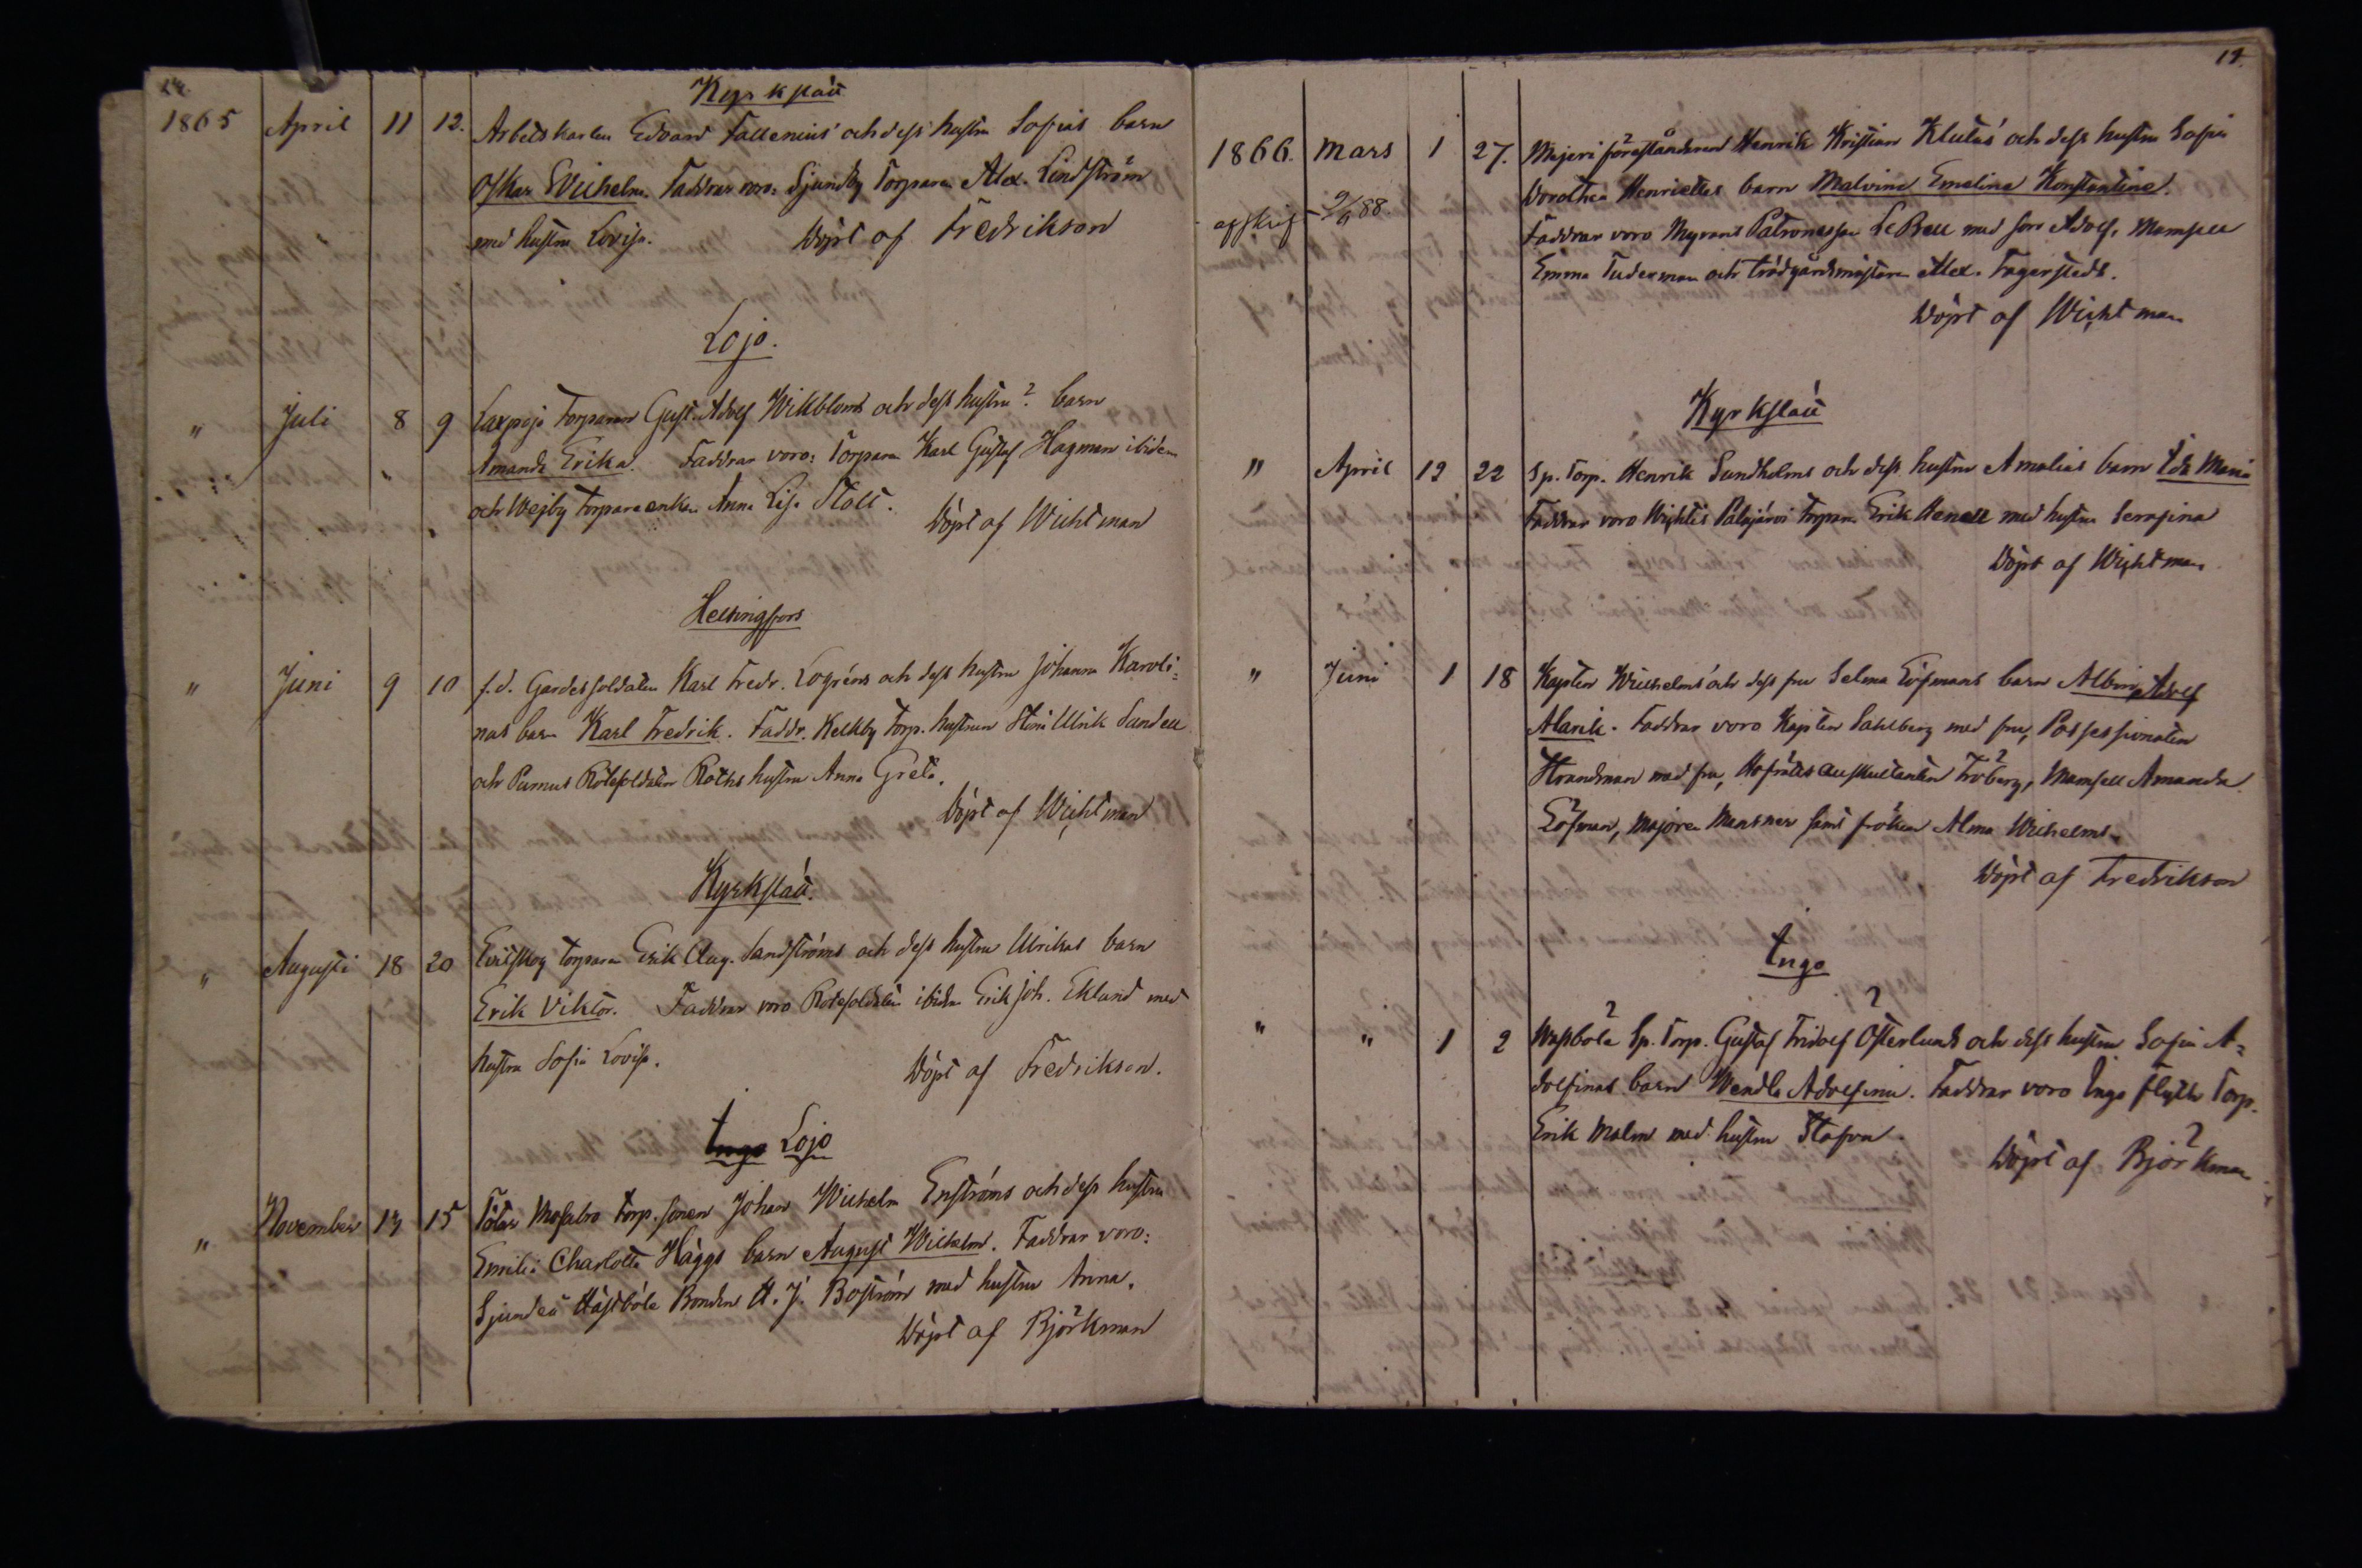 Kyrkslätt
1865 April 11 12. Arbetskarlen Edvard Fallenius' och dess hustru Sofias barn
Oskar Wilhelm. Faddrar voro: Sjundby Torparen Alex. Lindström
med hustru Lovisa. Döpt af Fredrikson
Lojo.
" Juli 8 9 Laxpojo Torparen Gust. Adolf Wikbloms och dess hustru ? barn
Amanda Erika. Faddrar voro: Torparen Karl Gustaf Hagman ibidem
och Wejby Torpareenkan Anna Lisa Stolt.
Döpt af Wichtman
Helsingfors
" Juni 9 10 f.d. Gardessoldaten Karl Fredr. Logréns och dess hustru Johanna Karoli=
nas barn Karl Fredrik. Faddr. Kellby Torp. hustrun Stina Ulrik Sundell
och Purnus Rotesoldaten Roths hustru Anna Greta.
Döpt af Wichtman
Kyrkslätt.
" Augusti 18 20 Torparen Erik Aug. Sandströms och dess hustru Ulrikas barn
Erik Viktor. Faddrar voro Rotesoldaten ibidem Erik Joh. Eklund med
hustru Sofia Lovisa.
Döpt af Fredrikson.
Ingo Lojo
" November 14 15 Torp. sonen Johan Wilhelm Enströms och dess hustru
Emilia Charlotta Häggs barn August Wilhelm. Faddrar voro:
Sjundeå Hästböle Bonden A. J. Boström med hustru Anna.
Döpt af Björkman
19.
1866. Mars 1 27. Mejeriföreståndaren Henrik Kristian Klutas' och dess hustru Sofia
Dorothea Henriettas barn Malvina Emelina Konstantine.
afskrift 9/9 88.
Faddrar voro Myrans Patronessan LeBell med son Adolf, Mamsell
Emma Tuderman och Trädgårdsmästaren Alex. Fagerstedt.
Döpt af Wichtman
Kyrkslätt
" April 12 22 Sp. Torp. Henrik Sundholms och dess hustru Amalias barn Ida Maria
Faddrar voro Wichtis Palojärvi Torparen Erik Henell med hustru Serafina
Döpt af Wichtman
" Juni 1 18 Kapten Wilhelms' och dess fru Selma Löfmans barn Albin Adolf
Alarik. Faddrar voro Kapten Sahlberg med fru, Possessionaten
Strandman med fru, Hofrättsauskultanten Fröberg, Mamsell Amanda
Löfman, Majoren Mansner samt fröken Alma Wilhelms.
Döpt af Fredrikson
Ingo
" " 1 2 Sp. Torp. Gustaf Fridolf Österlunds och dess hustru Sofia A=
dolfinas barn Wendla Adolfina. Faddrar voro Ingo Flyth Torp.
Erik Malm med hustru Stafva.
Döpt af Björkman